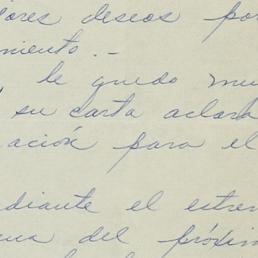 ores deseos por
miento. -
le quedo mu
su carta aclara
ación para el
diante el estre
ua del próxim